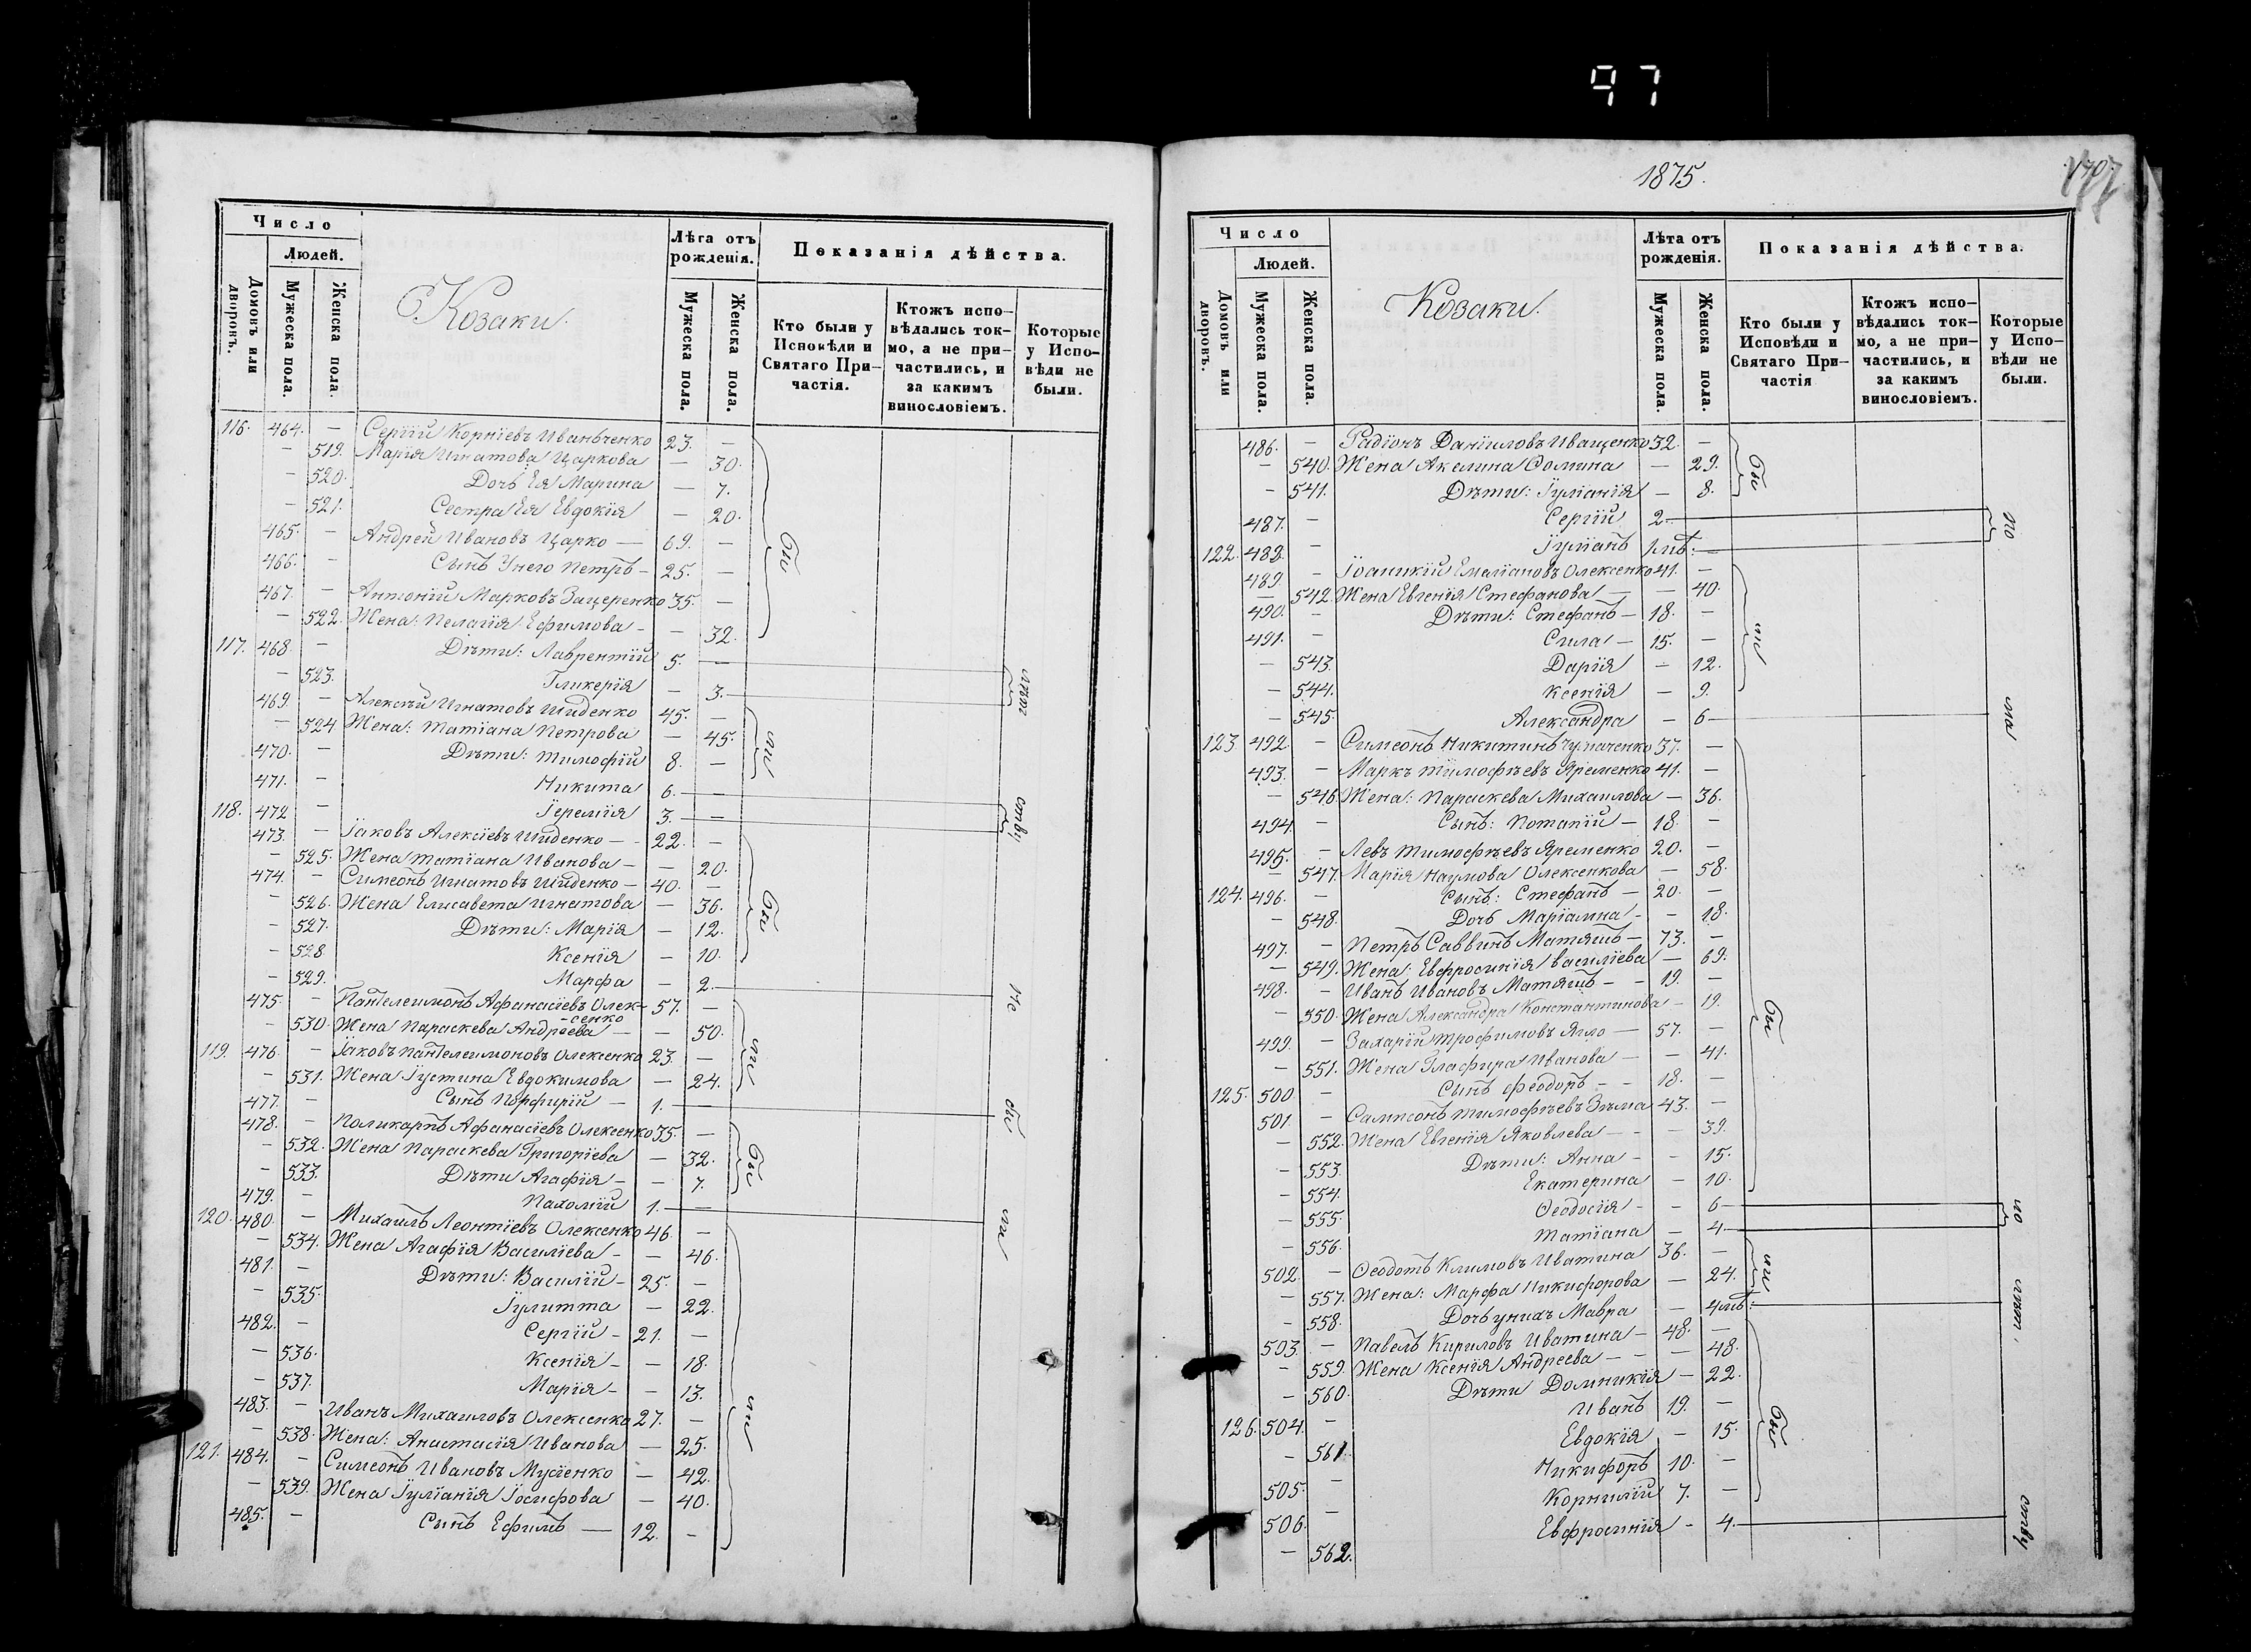 97
Число
Людей.
Домовъ или дворовъ.
Мужеска пола.
Женска пола.
Козаки.
Лѣта отъ рожденія.
Мужеска пола.
Женска пола.
Показанія дѣйства.
Кто были у Исповѣди и Святаго Причастія.
Ктожъ исповѣдались токмо, а не причастились, и за какимъ винословіемъ.
Которые у Исповѣди не были.
116. 464. — Сергій Корніевъ Иваньченко 23. —
— 519. Марія Игнатова Царкова — 30.
— 520. Дочь Ея Марина — 7.
— 521. Сестра Ея Евдокія — 20.
465. — Андрей Ивановъ Царко — 69. —
466. — Сынъ Унего Петръ — 25. —
467. — Антоній Марковъ Зацеренко 35. —
— 522. Жена: Пелагія Ефимова — — 32.
117. 468. — Дѣти: Лаврентій 5. —
— 523. Гликерія — 3.
469. — Алексѣй Игнатовъ Шиденко 45. —
— 524. Жена: Татіана Петрова — 45.
470. — Дѣти: Тимофій 8. —
471. — Никита 6. —
118. 472 — Іеремія 3. —
473. — Іаковъ Алексіевъ Шиденко — 22. —
— 525. Жена Татіана Иванова — — 20.
474. — Симеонъ Игнатовъ Шиденко — 40. —
— 526. Жена Елисавета Игнатова — 36.
— 527. Дѣти: Марія — 12.
— 528. Ксенія — 10.
— 529. Марфа — 2.
475. — Пантелеимонъ Афанасіевъ Олек-сенко 57. —
— 530. Жена Параскева Андреева — — 50.
119. 476. — Іаковъ Пантелеимоновъ Олексенко 23. —
— 531. Жена Іустина Евдокимова — 24.
477. — Сынъ Порфирій — 1. —
478. — Поликарпъ Афанасіевъ Олексенко 35. —
— 532. Жена Параскева Григоріева — 32.
— 533. Дѣти Агафія — — 7.
479. — Пахомій 1. —
120. 480. — Михаилъ Леонтіевъ Олексенко 46. —
— 534. Жена Агафія Василіева — — 46.
481. — Дѣти: Василій — 25. —
— 535. Іулитта — 22.
482. — Сергій — 21. —
— 536. Ксенія — — 18.
— 537. Марія — — 13.
483. — Иванъ Михаиловъ Олексенко 27. —
— 538. Жена: Анастасія Иванова — 25.
121. 484. — Симеонъ Ивановъ Мусіенко — 42.
— 539. Жена Іуліанія Іосифова — 40.
485. — Сынъ Ефимъ — 12. —
1875.
Число
Людей.
Домовъ или дворовъ.
Мужеска пола.
Женска пола.
Козаки.
Лѣта отъ рожденія.
Мужеска пола.
Женска пола.
Показанія дѣйства.
Кто были у Исповѣди и Святаго Причастія
Ктожъ исповѣдались токмо, а не причастились, и за какимъ винословіемъ.
Которые у Исповѣди не были.
486. — Радіонъ Даніиловъ Иващенко 32. —
— 540. Жена Акилина Фомина — 29.
— 541. Дѣти: Іуліанія — 8.
487. — Сергій 2.
122. 488. — Іуліанъ
489. — Іоаникій Емаліановъ Олексенко 41. —
— 542. Жена Евгенія Стефанова — — 40.
490. — Дѣти: Стефанъ — 18. —
491. — Сила — 15. —
— 543. Дарія — 12.
— 544. Ксенія — 9.
— 545. Александра — 6
123. 492. — Симеонъ Никитинъ Чумаченко 37. —
493. — Маркъ Тимофѣевъ Яременко 41. —
— 546. Жена: Параскева Михаилова — 36.
494. — Сынъ: Потапій — 18. —
495. — Левъ Тимофѣевъ Яременко 20. —
— 547. Марія Наумова Олексенкова — 58.
124. 496. — Сынъ: Стефанъ — 20. —
— 548. Дочь Маріамна — — 18.
497. — Петръ Саввинъ Матяшъ — 73. —
— 549. Жена: Евфросинія Василіева — 69.
498. — Иванъ Ивановъ Матяшъ — 19. —
— 550. Жена Александра Константинова — 19.
499. — Захарій Трофимовъ Ягло — 57. —
— 551. Жена Глафира Иванова — — 41.
125. 500. — Сынъ Феодоръ — 18. —
501. — Сампсонъ Тимофѣевъ Зѣма 43. —
— 552. Жена Евгенія Яковлева — — 39.
— 553. Дѣти: Анна — — 15.
— 554. Екатерина — 10.
— 555. Феодосія — — 6
— 556. Татіана — 4
502. — Феодотъ Климовъ Иватина 36. —
— 557. Жена: Марфа Никифорова — 24.
— 558. Дочь унихъ Мавра —
503. — Павелъ Кириловъ Иватина — 48. —
— 559. Жена Ксенія Андреева — — 48.
— 560. Дѣти Домникія — 22.
126. 504. — Иванъ 19. —
— 561. Евдокія — 15.
505. — Никифоръ 10. —
506. — Корнилій 7. —
— 562. Евфросинія — 4.